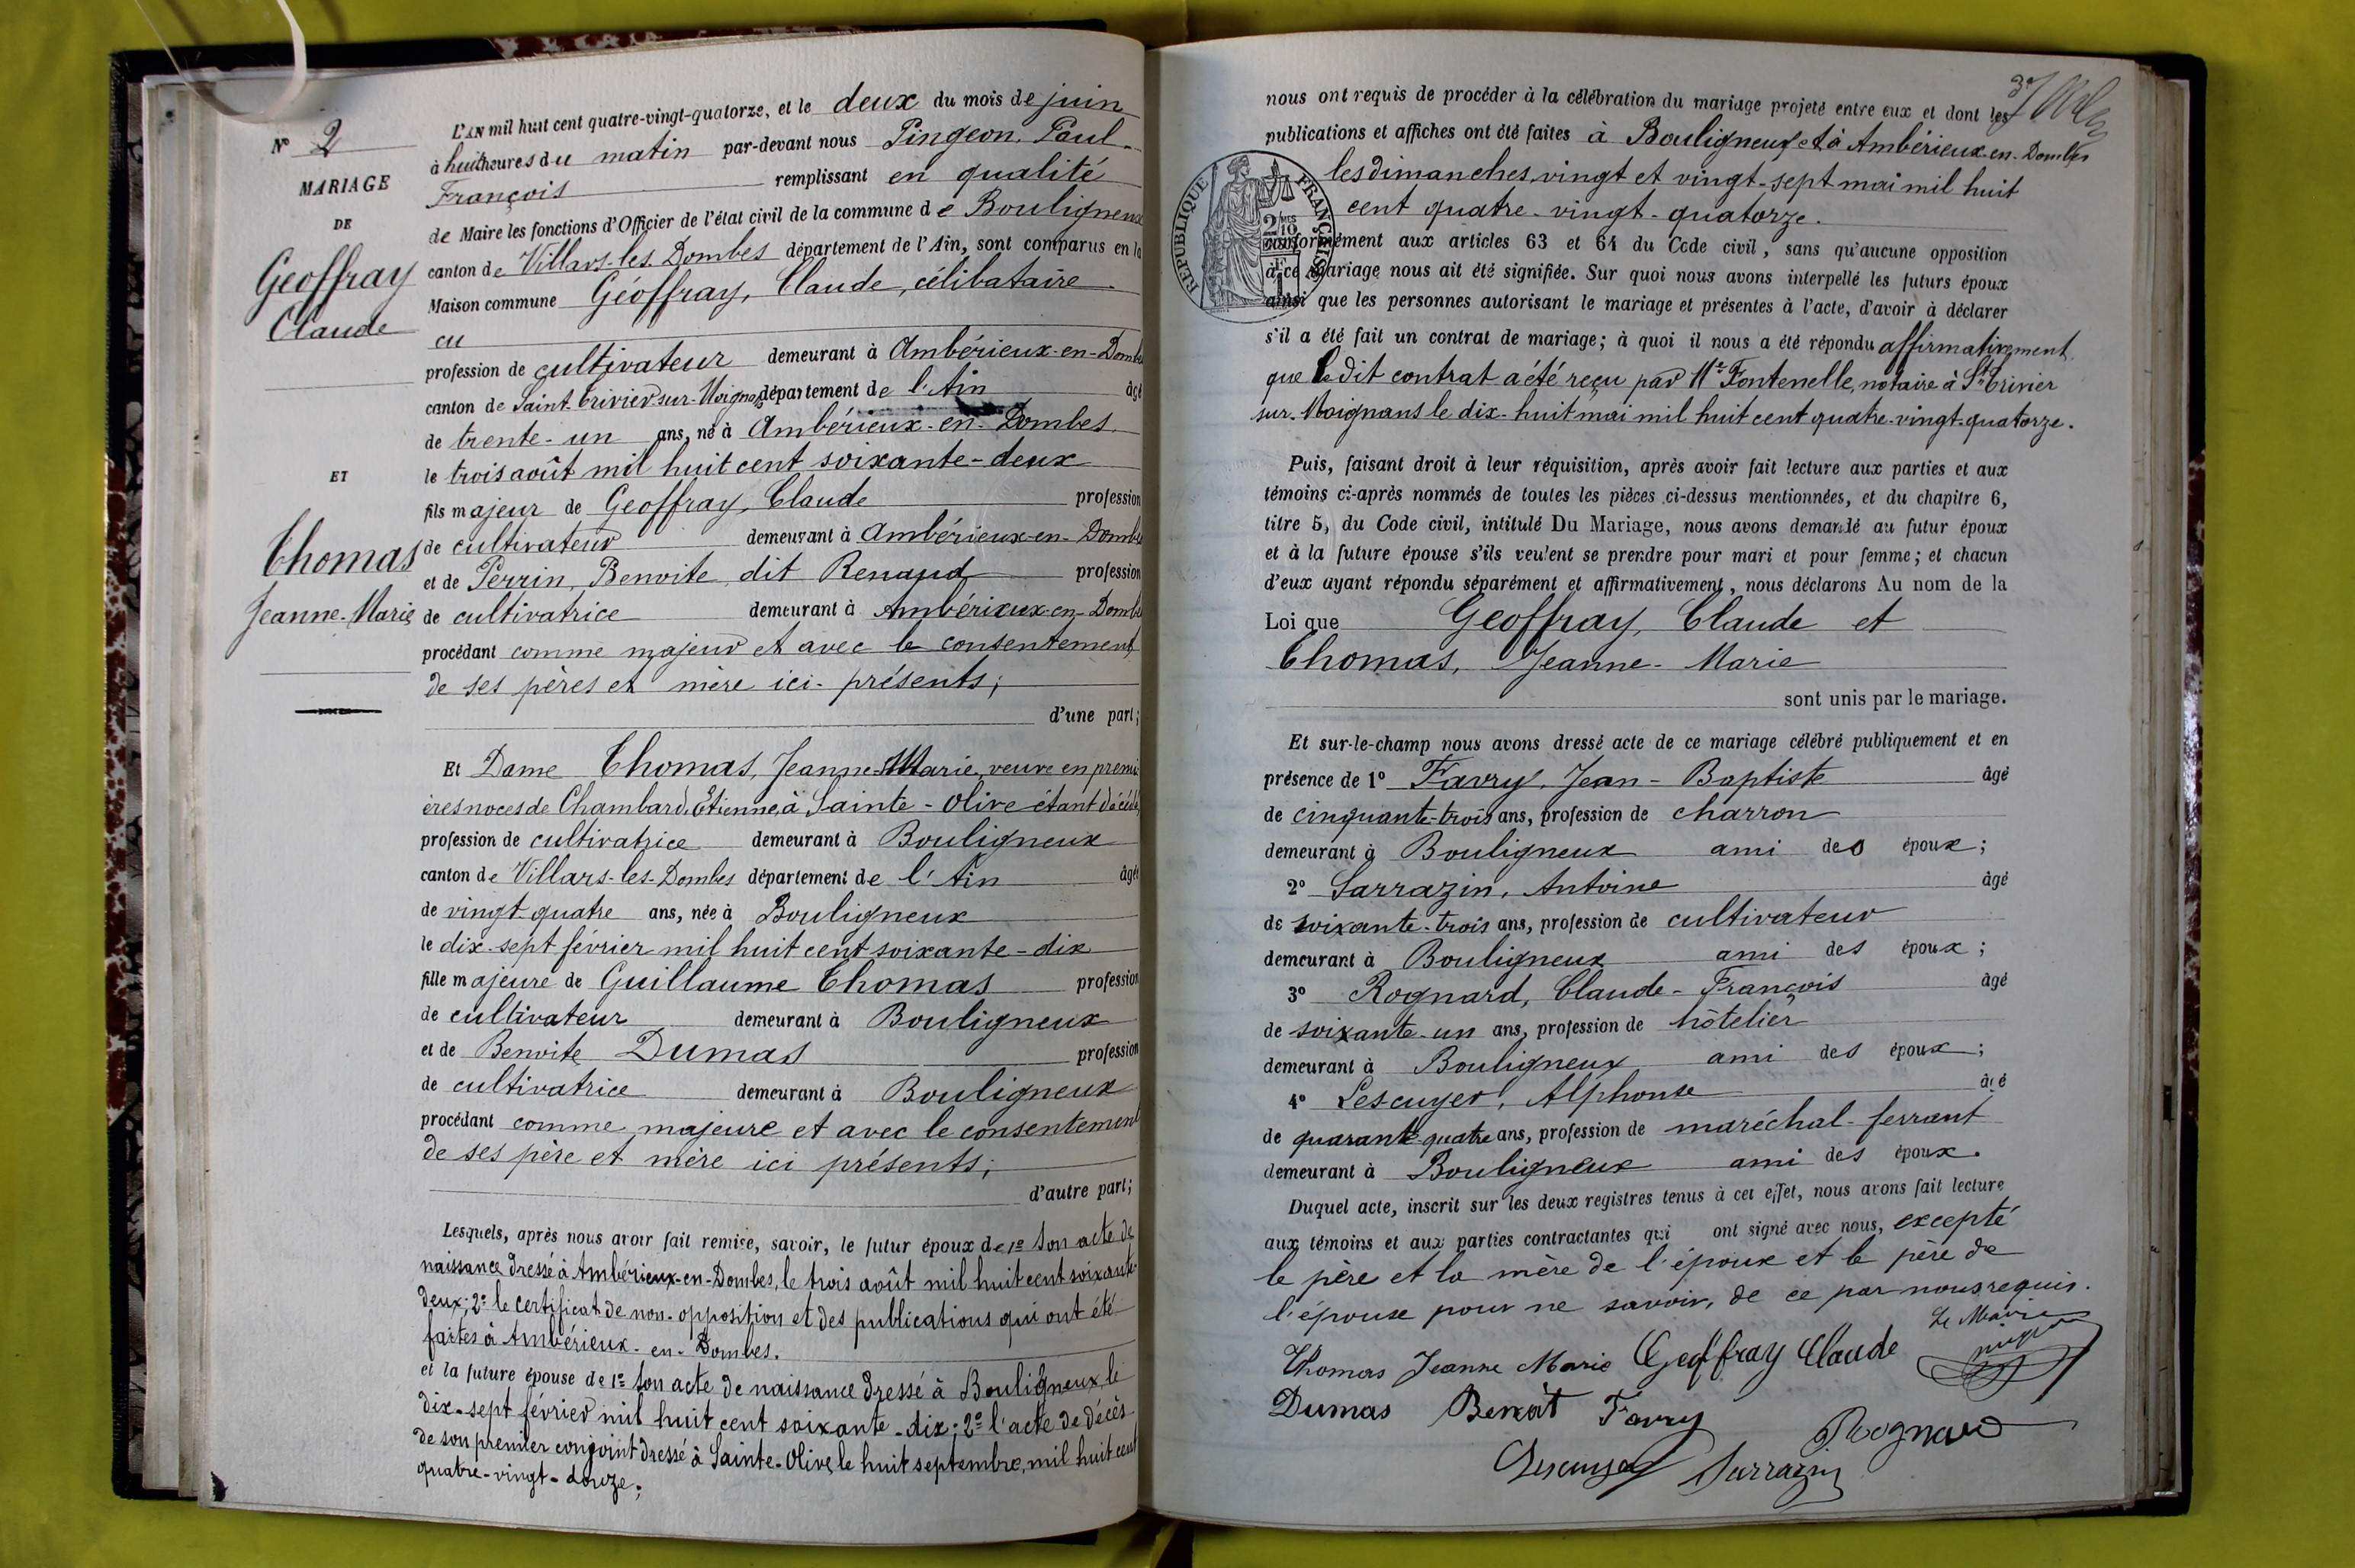 N° 2
MARIAGE
DE
Geoffray
Claude
ET
Thomas
Jeanne-Marie
L'AN mil huit cent quatre-vingt-quatorze, et le deux du mois de juin
à huit heures du matin par-devant nous Pingeon, Paul-
François remplissant en qualité
de Maire les fonctions d'Officier de l'état civil de la commune de Bouligneux
canton de Villars-les-Dombes département de l'Ain, sont comparus en la
Maison commune Géoffray, Claude, célibataire
eu
profession de cultivateur demeurant à Ambérieux-en-Dombes
canton de Saint-Trivier sur-Moignans département de l'Ain âgé
de trente-un ans, né à Ambérieux-en-Dombes
le trois août mil huit cent soixante-deux
fils majeur de Geoffray, Claude profession
de cultivateur demeurant à Ambérieux-en-Dombes
et de Perrin, Benoite, dit Renaud profession
de cultivatrice demeurant à Ambérieux-en-Dombes
procédant comme majeur et avec le consentement
de ses pères et mère ici-présents;
d'une part;
Et Dame Thomas, Jeanne-Marie, veuve en premi-
ères noces de Chambard, Etienne, à Sainte-Olive étant décédé,
profession de cultivatrice demeurant à Bouligneux
canton de Villars-les-Dombes département de l'Ain âgée
de vingt quatre ans, née à Bouligneux
le dix-sept février mil huit cent soixante-dix
fille majeure de Guillaume Thomas profession
de cultivateur demeurant à Bouligneux
et de Benoite Dumas profession
de cultivatrice demeurant à Bouligneux
procédant comme majeure et avec le consentement
de ses père et mère ici présents;
d'autre part;
Lesquels, après nous avoir fait remise, savoir, le futur époux de 1° son acte de
naissance dressé à Ambérieux-en-Dombes, le trois août mil huit cent soixante-
deux; 2° le certificat de non-opposition et des publications qui ont été
faites à Ambérieux-en-Dombes.
et la future épouse de 1° son acte de naissance dressé à Bouligneux, le
dix-sept février mil huit cent soixante-dix; 2° l'acte de décès
de son premier conjoint dressé à Sainte-Olive, le huit septembre, mil huit cent
quatre-vingt-douze;
nous ont requis de procéder à la célébration du mariage projeté entre eux et dont les
publications et affiches ont été faites à Bouligneux et à Ambérieux-en-Dombes
les dimanches, vingt et vingt-sept mai mil huit
cent quatre-vingt-quatorze.
RÉPUBLIQUE FRANÇAISE
conformément aux articles 63 et 64 du Code civil, sans qu'aucune opposition
à ce mariage nous ait été signifiée. Sur quoi nous avons interpellé les futurs époux
ainsi que les personnes autorisant le mariage et présentes à l'acte, d'avoir à déclarer
s'il a été fait un contrat de mariage; à quoi il nous a été répondu affirmativement
que le dit contrat a été reçu par Me Fontenelle, notaire à St Trivier
sur-Moignans le dix-huit mai mil huit cent quatre-vingt-quatorze.
Puis, faisant droit à leur réquisition, après avoir fait lecture aux parties et aux
témoins ci-après nommés de toutes les pièces ci-dessus mentionnées, et du chapitre 6,
titre 5, du Code civil, intitulé Du Mariage, nous avons demandé au futur époux
et à la future épouse s'ils veulent se prendre pour mari et pour femme; et chacun
d'eux ayant répondu séparément et affirmativement, nous déclarons Au nom de la
Loi que Geoffray, Claude et
Thomas, Jeanne-Marie
sont unis par le mariage.
Et sur-le-champ nous avons dressé acte de ce mariage célébré publiquement et en
présence de 1° Favry, Jean-Baptiste âgé
de cinquante-trois ans, profession de charron
demeurant à Bouligneux ami des époux;
2° Sarrazin, Antoine âgé
de soixante-trois ans, profession de cultivateur
demeurant à Bouligneux ami des époux;
3° Rognard, Claude-François âgé
de soixante-un ans, profession de hôtelier
demeurant à Bouligneux ami des époux;
4° Lescuyer, Alphonse âgé
de quarante quatre ans, profession de maréchal-ferrant
demeurant à Bouligneux ami des époux.
Duquel acte, inscrit sur les deux registres tenus à cet effet, nous avons fait lecture
aux témoins et aux parties contractantes qui ont signé avec nous, excepté
le père et la mère de l'époux et le père de
l'épouse pour ne savoir, de ce par nous requis.
Le Maire
Thomas Jeanne Marie Geoffray Claude
Dumas Benoit Favry
Rognard
Lescuyer Sarrazin